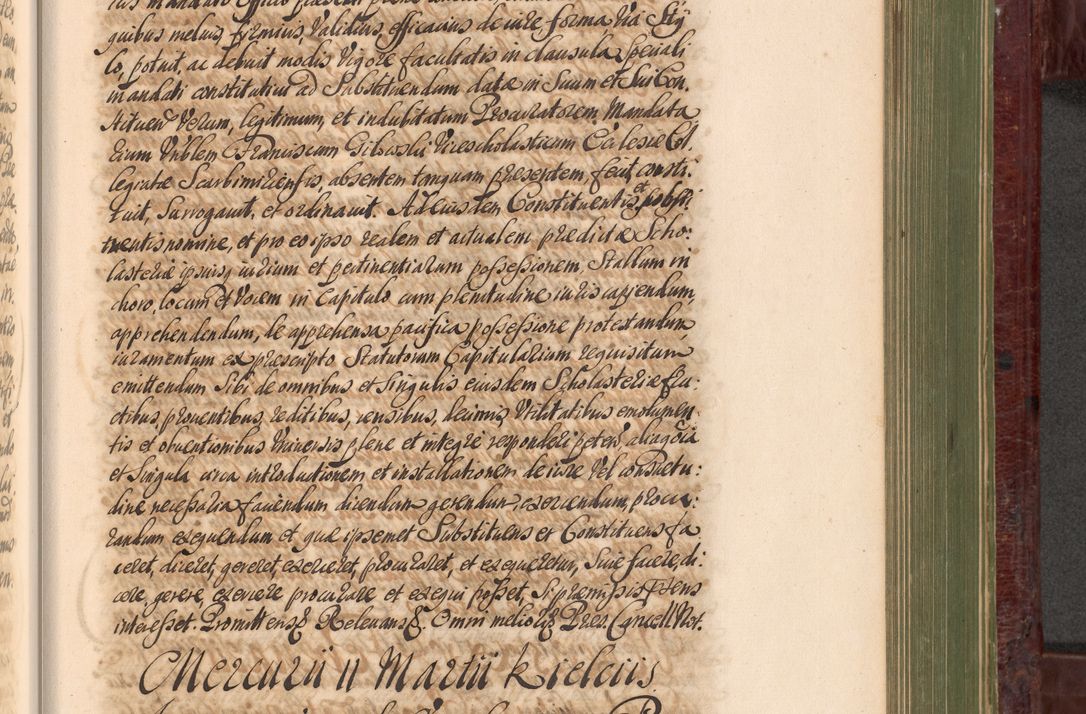 quibus melius, firmius, validius, efficacius de iure, forma, via, sty-
lo, potuit, ac debuit modis vigore facultatis in clausula speciali
mandati constitutiui ad substituendum datæ in suum et sui Con-
stituen verum, legitimum, et indubitatum Procuratorem, Mandata
rium Vnblem Franciscum Gilowski Vicescholasticum Ecclesiæ Col
legiatæ Scarbimiriensis, absentem tanquam præsentem, fecit consti-
tuit, surrogauit, et ordinauit. Ad eiusdem Constituentis et substi
tuentis nomine, et pro eo ipso realem et actualem prædictæ Scho-
lasteriæ ipsius, iurium et pertinentiarum possessionem, Stallum in
choro, locum et vocem in Capitulo cum plenitudine iuris capiendum,
apprehendendum, de apprehensa pacifica possessione protestandum,
iuramentum ex præscripto Statutorum Capitularium requisitum
emittendum sibi de omnibus et singulis eiusdem Scholasteriæ fru-
ctibus, prouentibus, reditibus, censibus, decimis, vtilitatibus emolumen-
tis et obuentionibus vniuersis plene et integre responderi peten aliaq oia
et singula circa introductionem et installationem de iure vel consuetu-
dine necessaria faciendum dicendum gerendum, exercendum, procu-
randum exequendum et quæ ipsemet Substituens et Constituens fa
ceret, diceret, gereret, exerceret, procuraret, et exequeretur, siue facere, di-
cere, gerere, exercere procurare et exequi posset, si præmissis præns
interesset. Promittens &. Releuans &. Omni meliori & Præs. Cancell. Not.
Mercurii 11 Martii Kielciis